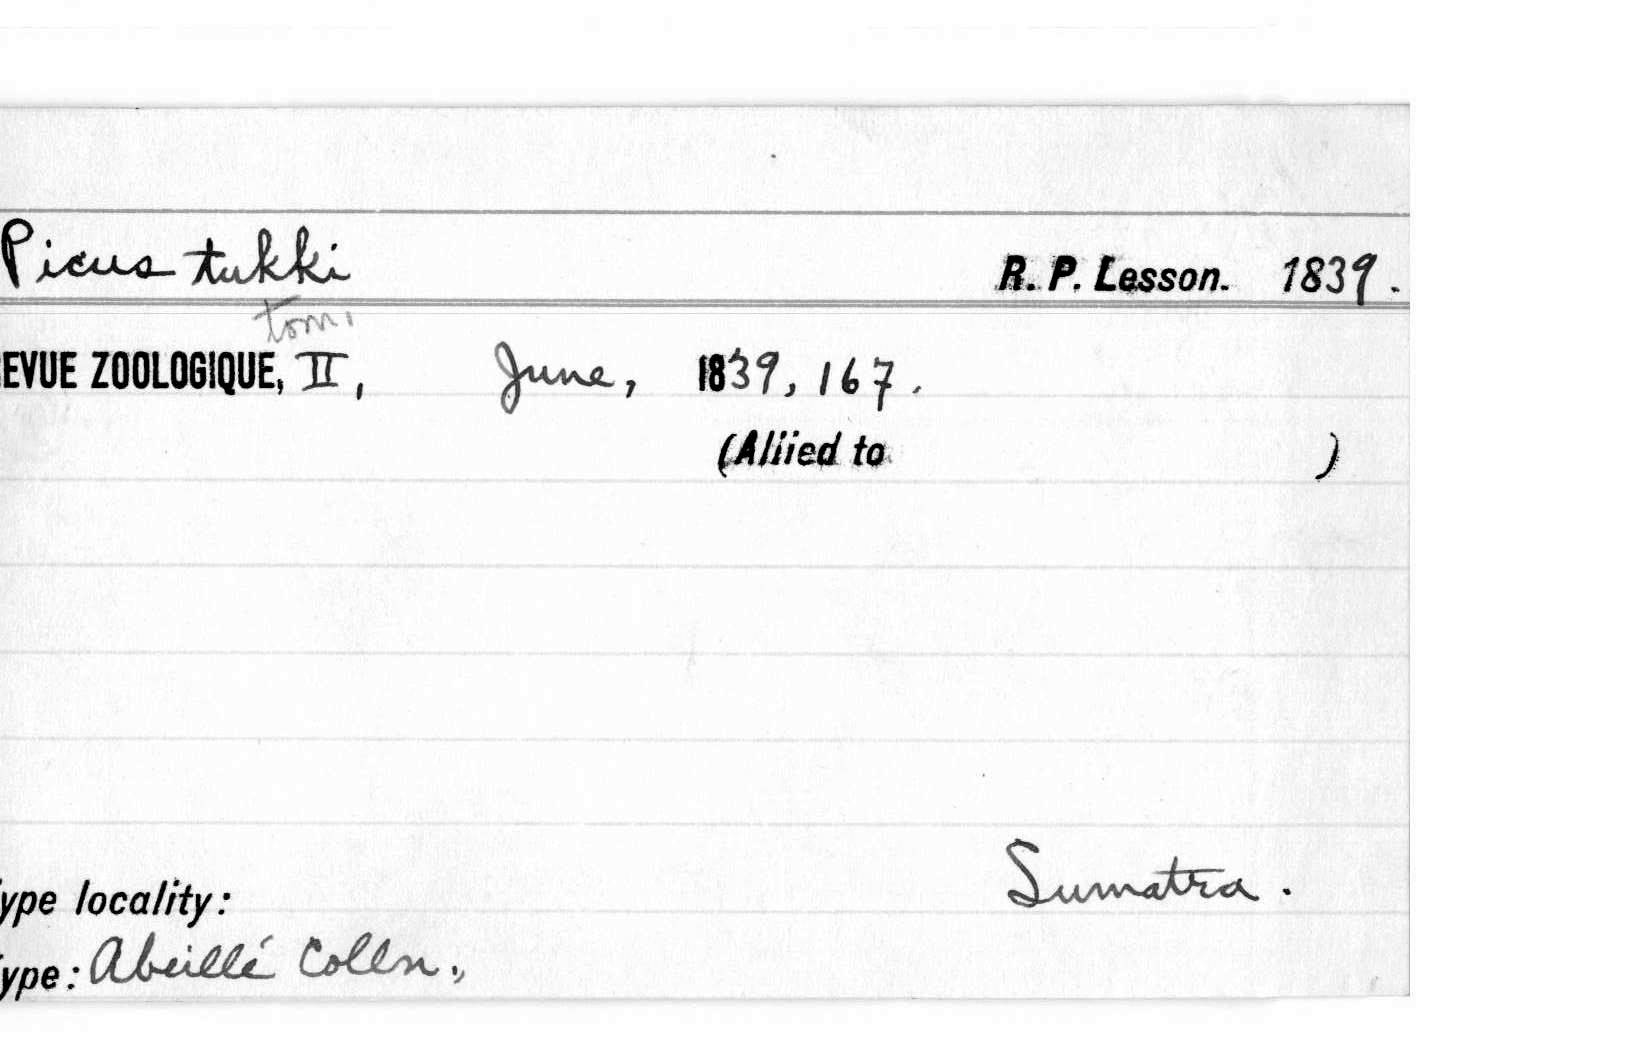 Picus tukki R. P. Lesson. 1839.
tom.
EVUE ZOOLOGIQUE, II, June, 1839, 167.
(Allied to )
ype locality: Sumatra.
ype: Abeillé Colln.,